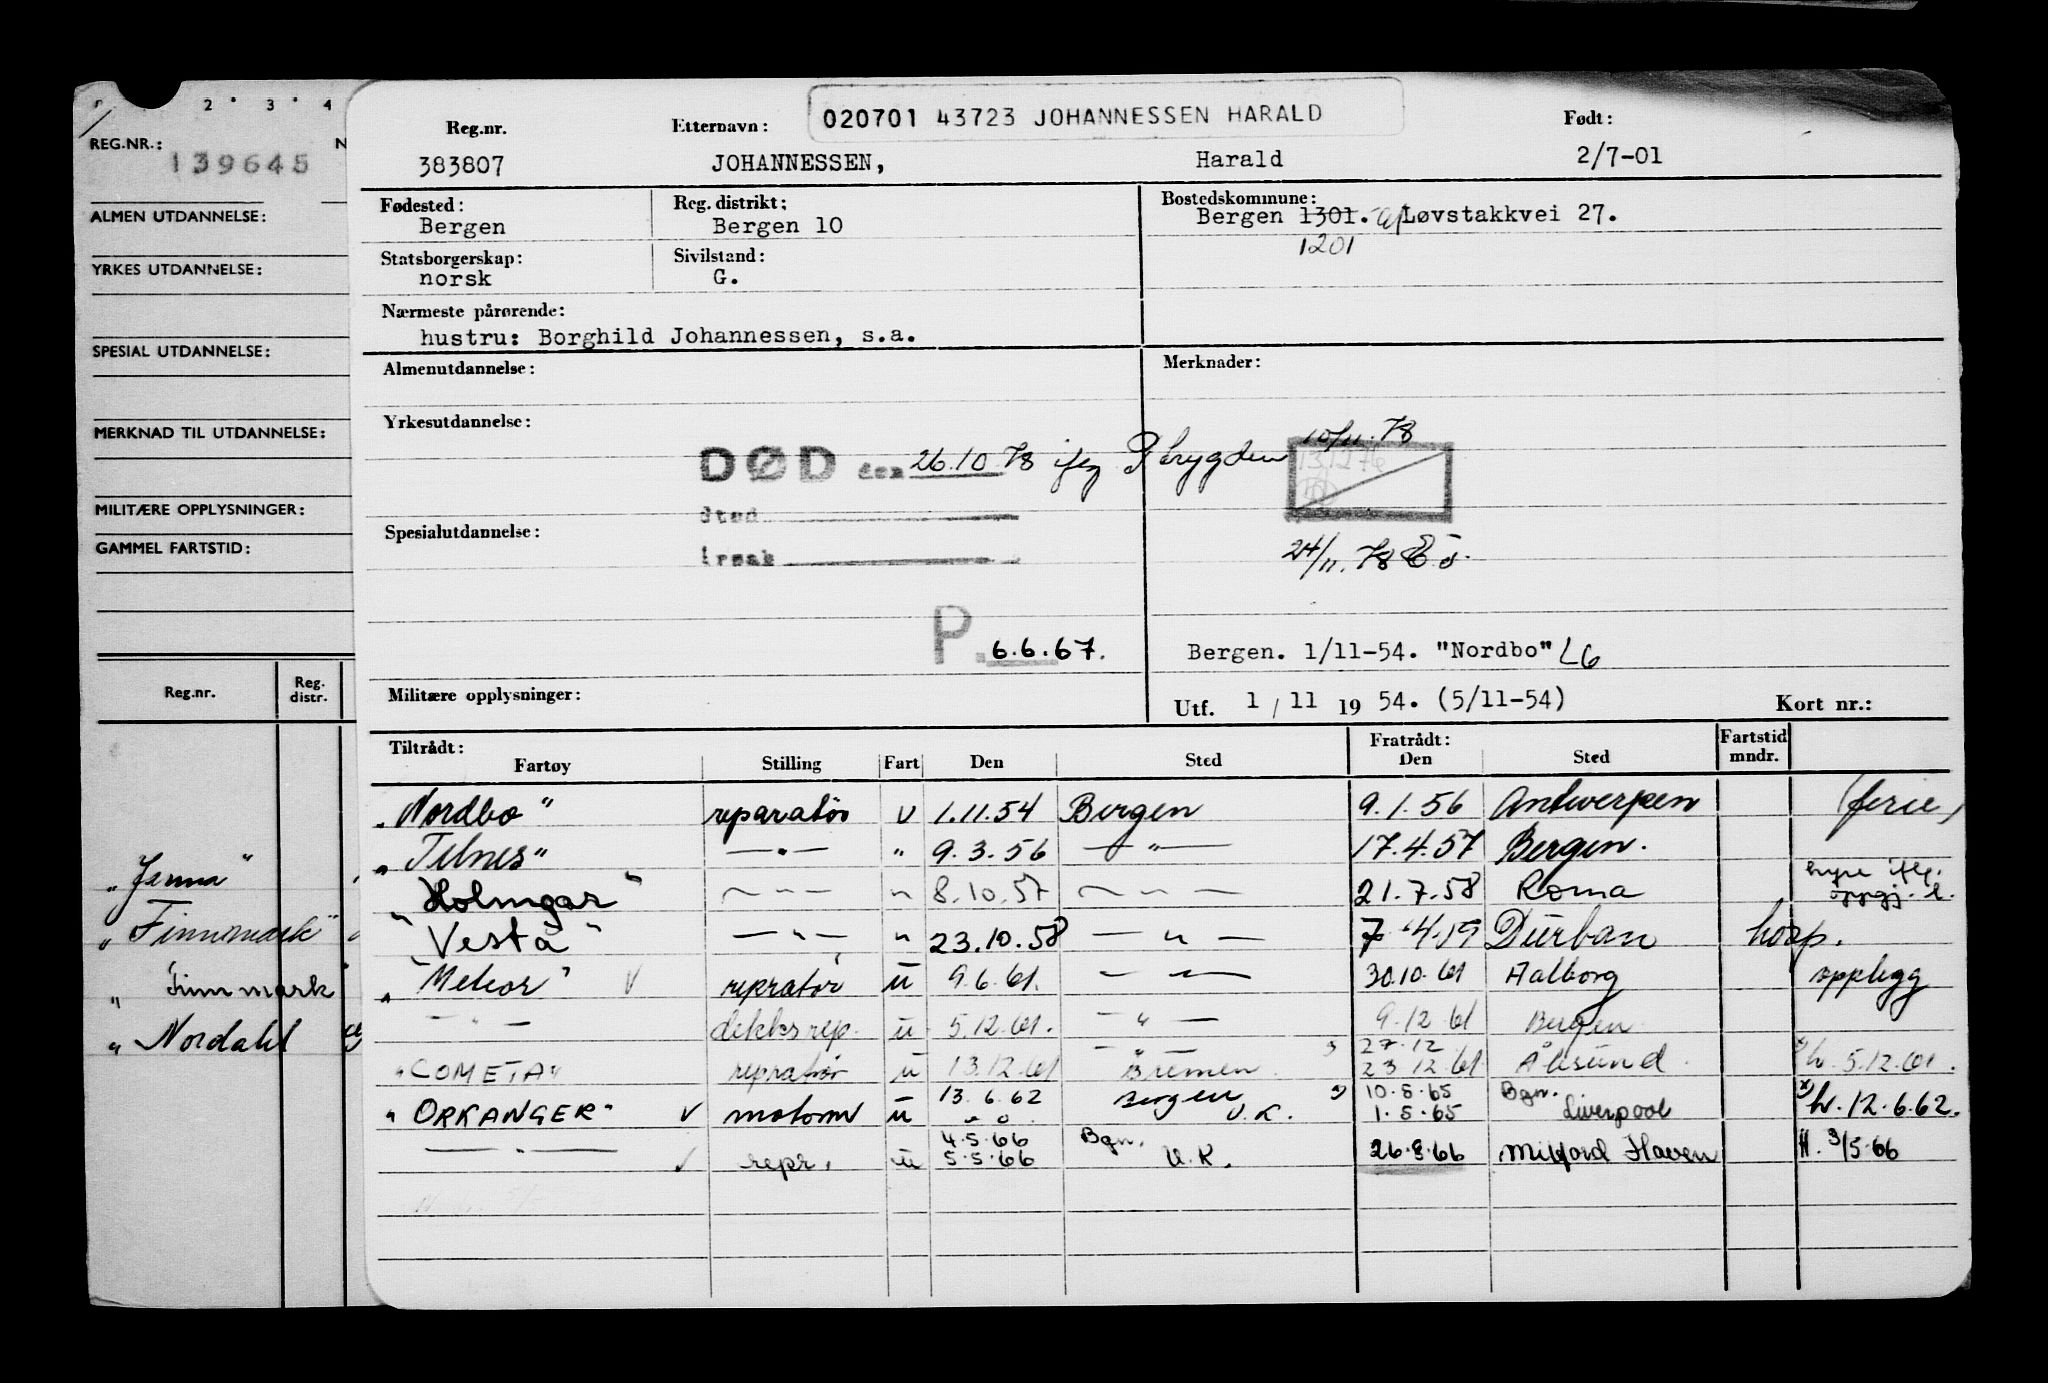 2 · 3 · 4
REG.NR.: N
139645
ALMEN UTDANNELSE:
YRKES UTDANNELSE:
SPESIAL UTDANNELSE:
MERKNAD TIL UTDANNELSE:
MILITÆRE OPPLYSNINGER:
GAMMEL FARTSTID:
Reg.nr. Reg. distr.
"Janna"
"Finnmark"
"Finnmark"
"Nordahl
020701 43723 JOHANNESSEN HARALD
Reg.nr. Etternavn: Født:
383807 JOHANNESSEN, Harald 2/7-01
Fødested: Reg. distrikt: Bostedskommune:
Bergen Bergen 10 Bergen 1301. Løvstakkvei 27.
1201
Statsborgerskap: Sivilstand:
norsk G.
Nærmeste pårørende:
hustru: Borghild Johannessen, s.a.
Almenutdannelse: Merknader:
Yrkesutdannelse:
10/11.78
DØD den 26.10.78 iflg P trygden
131276
sted
Spesialutdannelse:
årsak
24/11.78
P. 6.6.67.
Bergen. 1/11-54. "Nordbo" LG
Militære opplysninger:
Utf. 1/11 1954. (5/11-54) Kort nr.:
Tiltrådt: Fratrådt: Fartstid
Fartøy Stilling Fart Den Sted Den Sted mndr.
"Nordbo" reparatør v 1.11.54 Bergen 9.1.56 Antwerpen (ferie)
"Tilnes" —"— " 9.3.56 —"— 17.4.57 Bergen.
"Holmgar" —"— " 8.10.57 —"— 21.7.58 Roma hyre iflg. oppgj. l.
"Vesta" —"— " 23.10.58 —"— 7.4.59 Durban hosp.
"Meteor" v repratør u 9.6.61. —"— 30.10.61 Aalborg opplegg
—"— dekksrep. u 5.12.61. —"— 9.12.61 Bergen
27.12
"COMETA" repratør u 13.12.61 Bremen x) 23.12.61 Ålesund x) h. 5.12.61.
13.6.62 Bergen x) 10.5.65 Bgn.
"ORKANGER" v motorm u " " U.K. 1.5.65 Liverpool x) h. 12.6.62.
4.5.66 Bgn.
—"— v repr. u 5.5.66 U.K. 26.8.66 Milford Haven H. 3/5.66